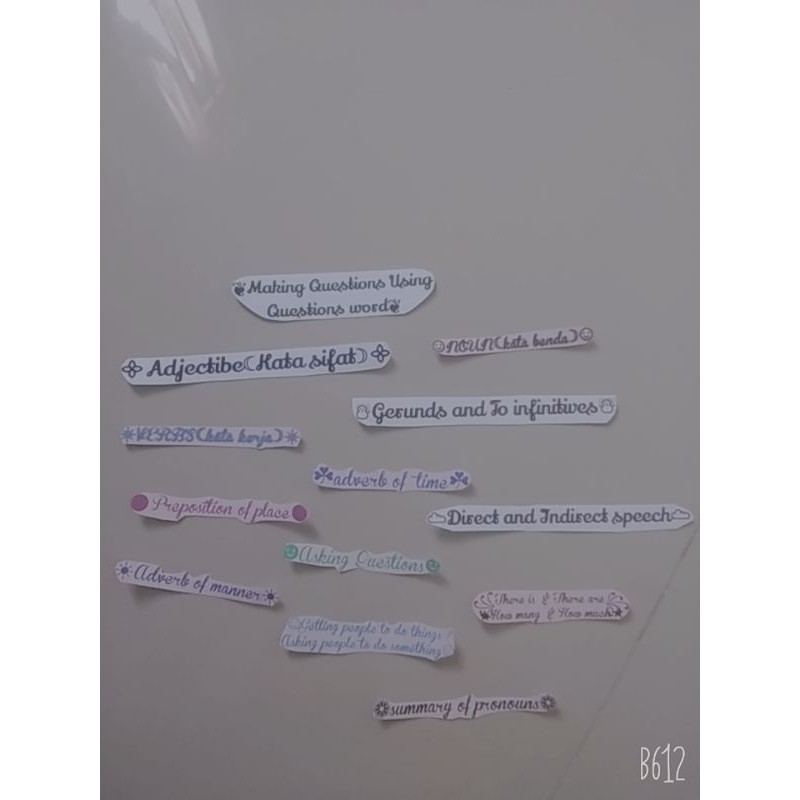 Making Questions Using
Questions word
NOUN(kata benda)
Adjectibe(Kata sifat)
Gerunds and To infinitives
VERBS(kata kerja)
adverb of time
Preposition of place
Direct and Indirect speech
Asking Questions
Adverb of manner
There is & There are
How many & How much
Getting people to do things
Asking people to do something
summary of pronouns
B612